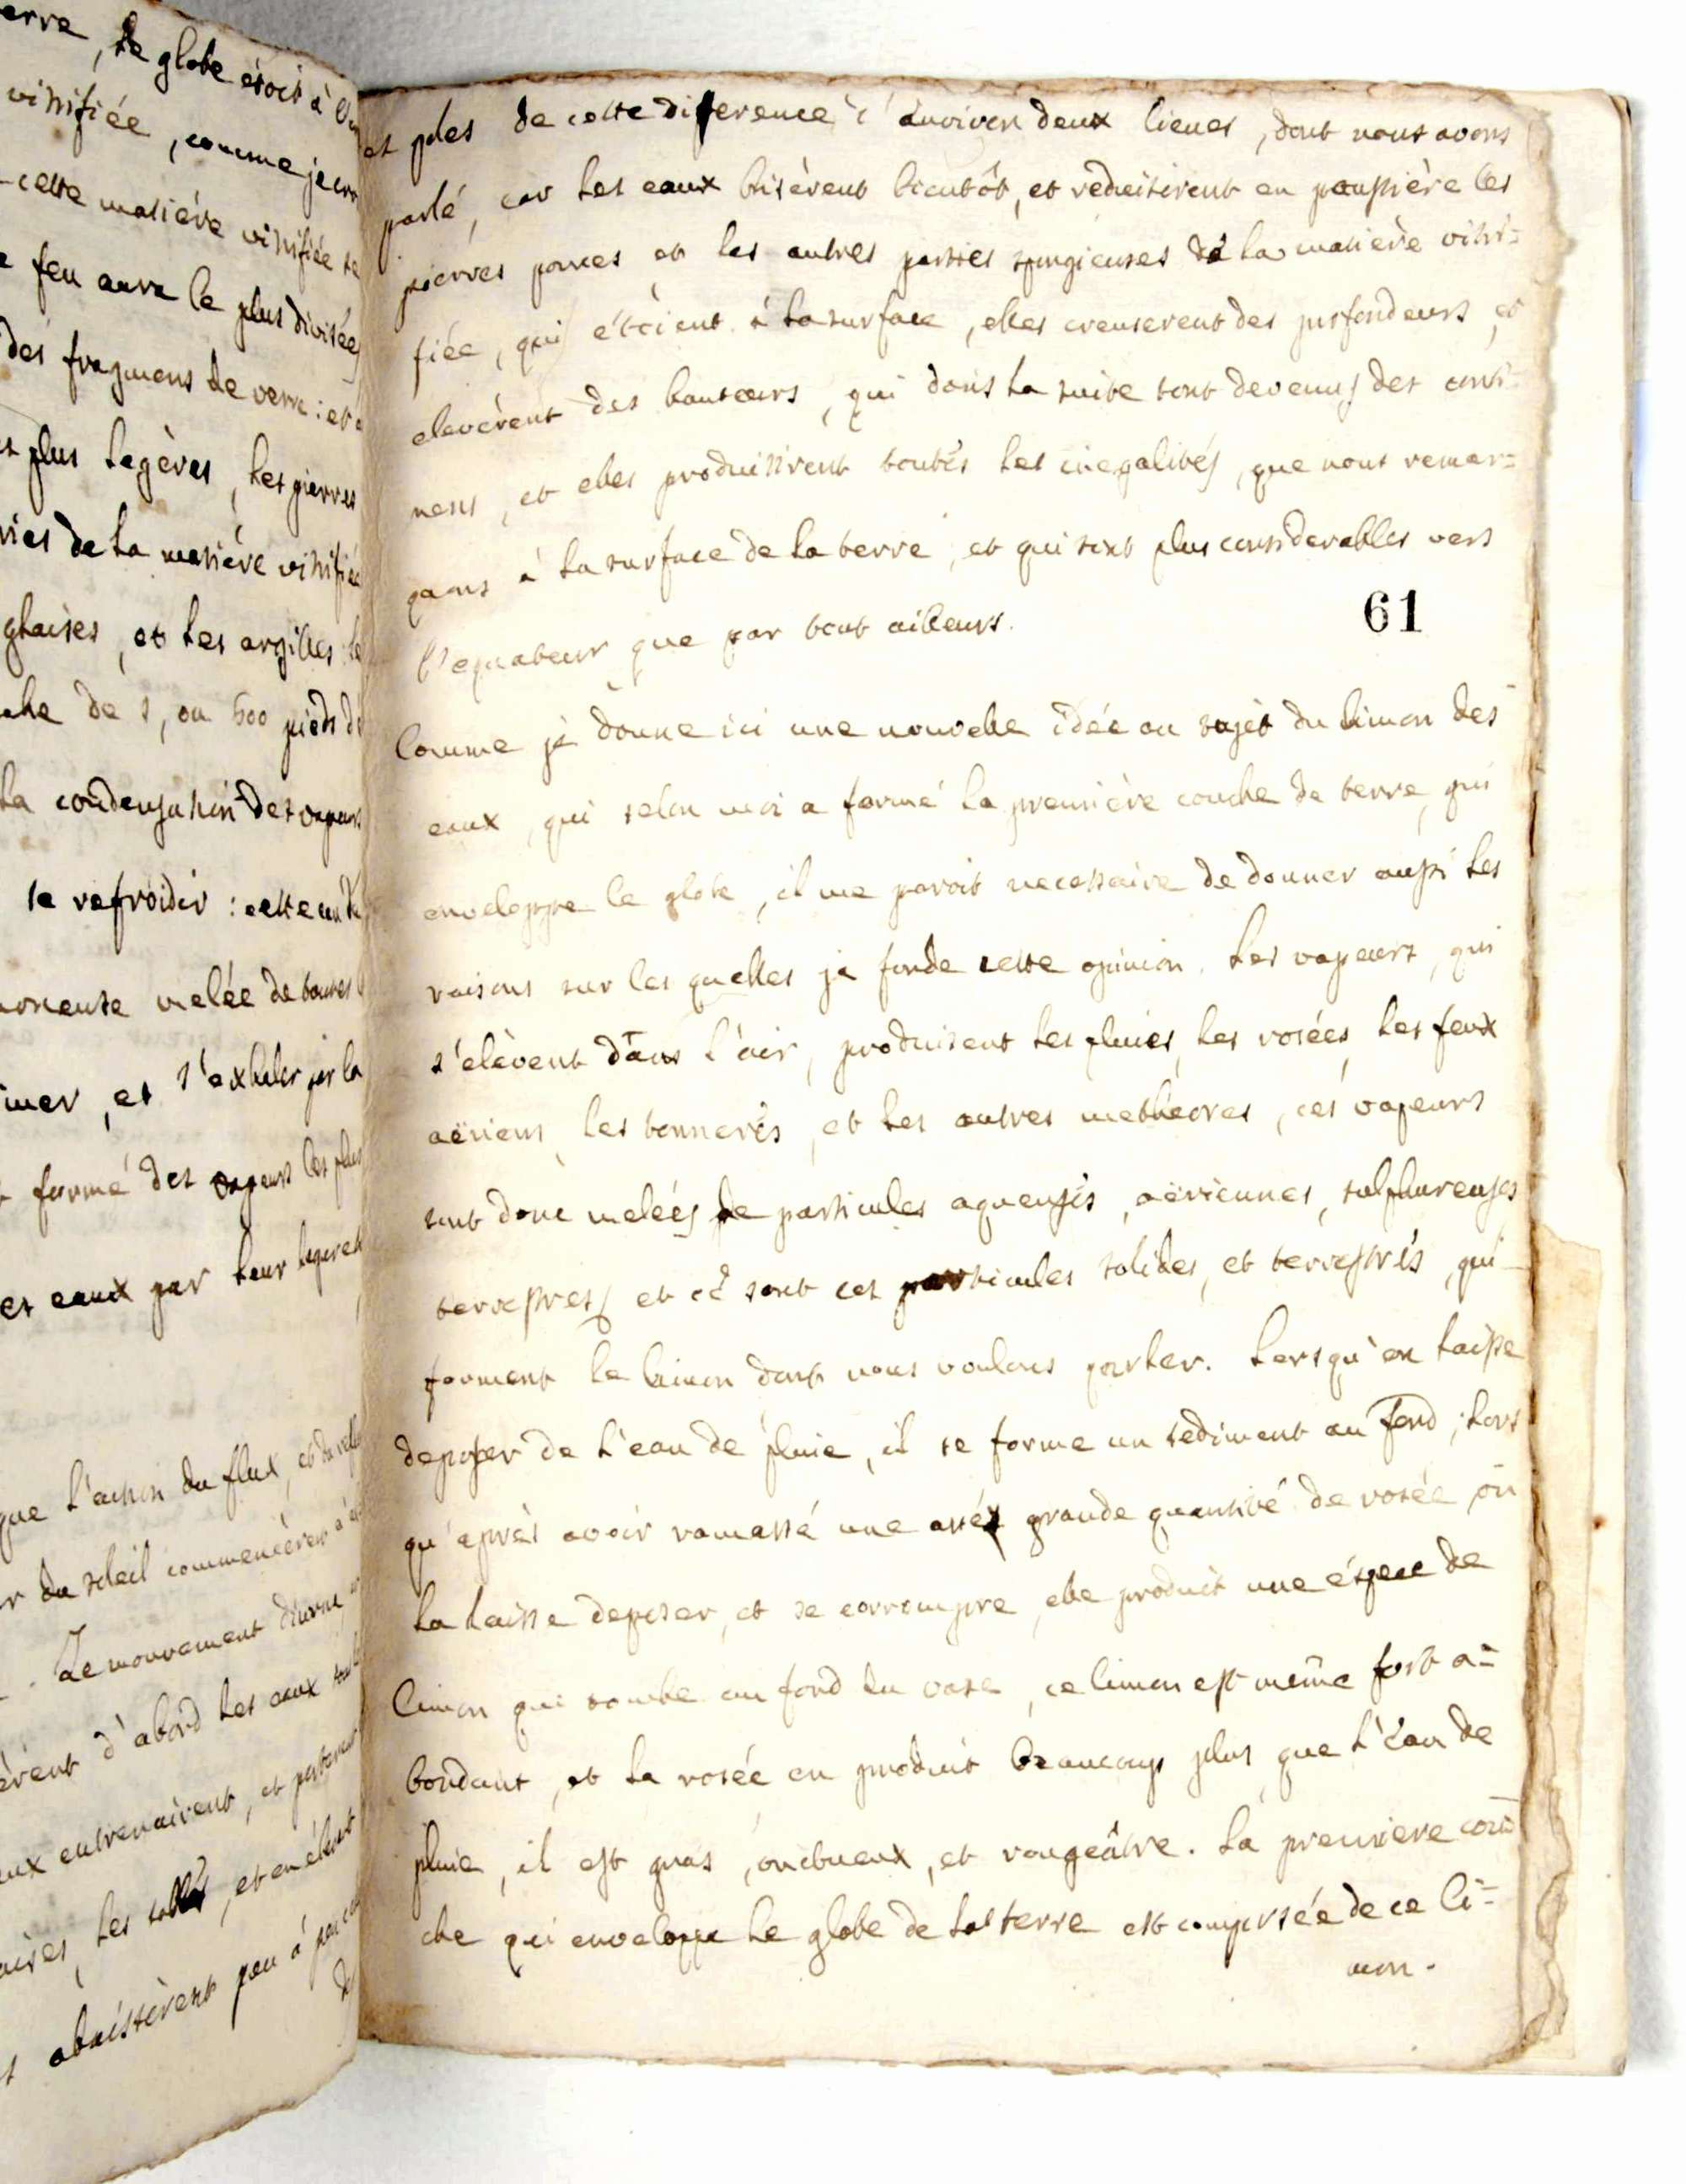 erre, le globe étoit à
vitrifiée, comme je
cette matiére vitrifiée se
feu aura le plus divisée
des fragmens de verre : et
plus legères, les pierres
de la matiére vitrifiée
glaises, et les argilles
de 5, ou 600 pieds de
la condensation des vapeurs
se refroidir : cette
melée de toutes
et s'exhaler par la
formé des vapeurs les plus
et eaux par leur legereté
que l'action du flux, et du
du soleil commencèrent à
Le mouvement diurne
d'abord les eaux
entrenairent, et
les sables, et en
abaissèrent peu à peu
et ples de cette diference d'environ deux lieues, dont nous avons
parlé, car les eaux brisèrent bientôt, et réduisirent en poussière les
pierres ponces et les autres parties spongieuses de la matière vitri=
fiée, qui étoient à la surface, elles creuserent des profondeurs, et
elevèrent des hauteurs, qui dans la suite sont devenus des conti=
nens, et elles produisirent toutes les inegalités, que nous remar=
quons à la surface de la terre, et qui sont plus considerables vers
l'equateur que par tout ailleurs.
61
Comme je donne ici une nouvelle idée au sujèt du limon des
eaux, qui selon moi a formé la première couche de terre, qui
enveloppe le globe, il me paroit necessaire de donner aussi les
raisons sur les quelles je fonde cette opinion. Les vapeurs, qui
s'elèvent dans l'air, produisent les pluies, les rosées, les feux
aëriens, les tonneres, et les autres metheores, ces vapeurs
sont donc melées de particules aqueuses, aëriennes, sulphureuses
terrestres, et ce sont ces particules solides, et terrestres, qui
forment le limon dont nous voulons parler. Lorsqu'on laisse
deposer de l'eau de pluie, il se forme un sediment au fond ; lors
qu'après avoir ramassé une asséz grande quantité de rosée, on
la laisse deposer, et se corrompre, elle produit une éspece de
limon qui tombe au fond du vase, ce limon est même fort a=
bondant, et la rosée en produit beaucoup plus, que l'eau de
pluie, il est gras, onctueux, et rougeâtre. La premiere cou=
che qui enveloppe le globe de la terre est composée de ce li=
mon.